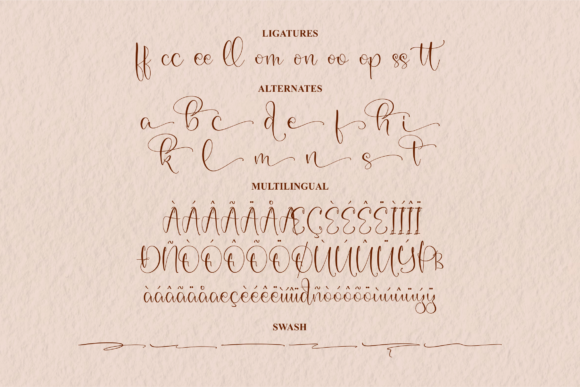 LIGATURES
ff cc ee ll om on oo op ss tt
ALTERNATES
a b c d e f h i
k l m n s t
MULTILINGUAL
ÀÁÂÃÄÅÆÇÈÉÊËÌÍÎÏ
ÐÑÒÓÔÕÖØÙÚÛÜÝÞß
àáâãäåæçèéêëìíîïðñòóôõöøùúûüýÿ
SWASH